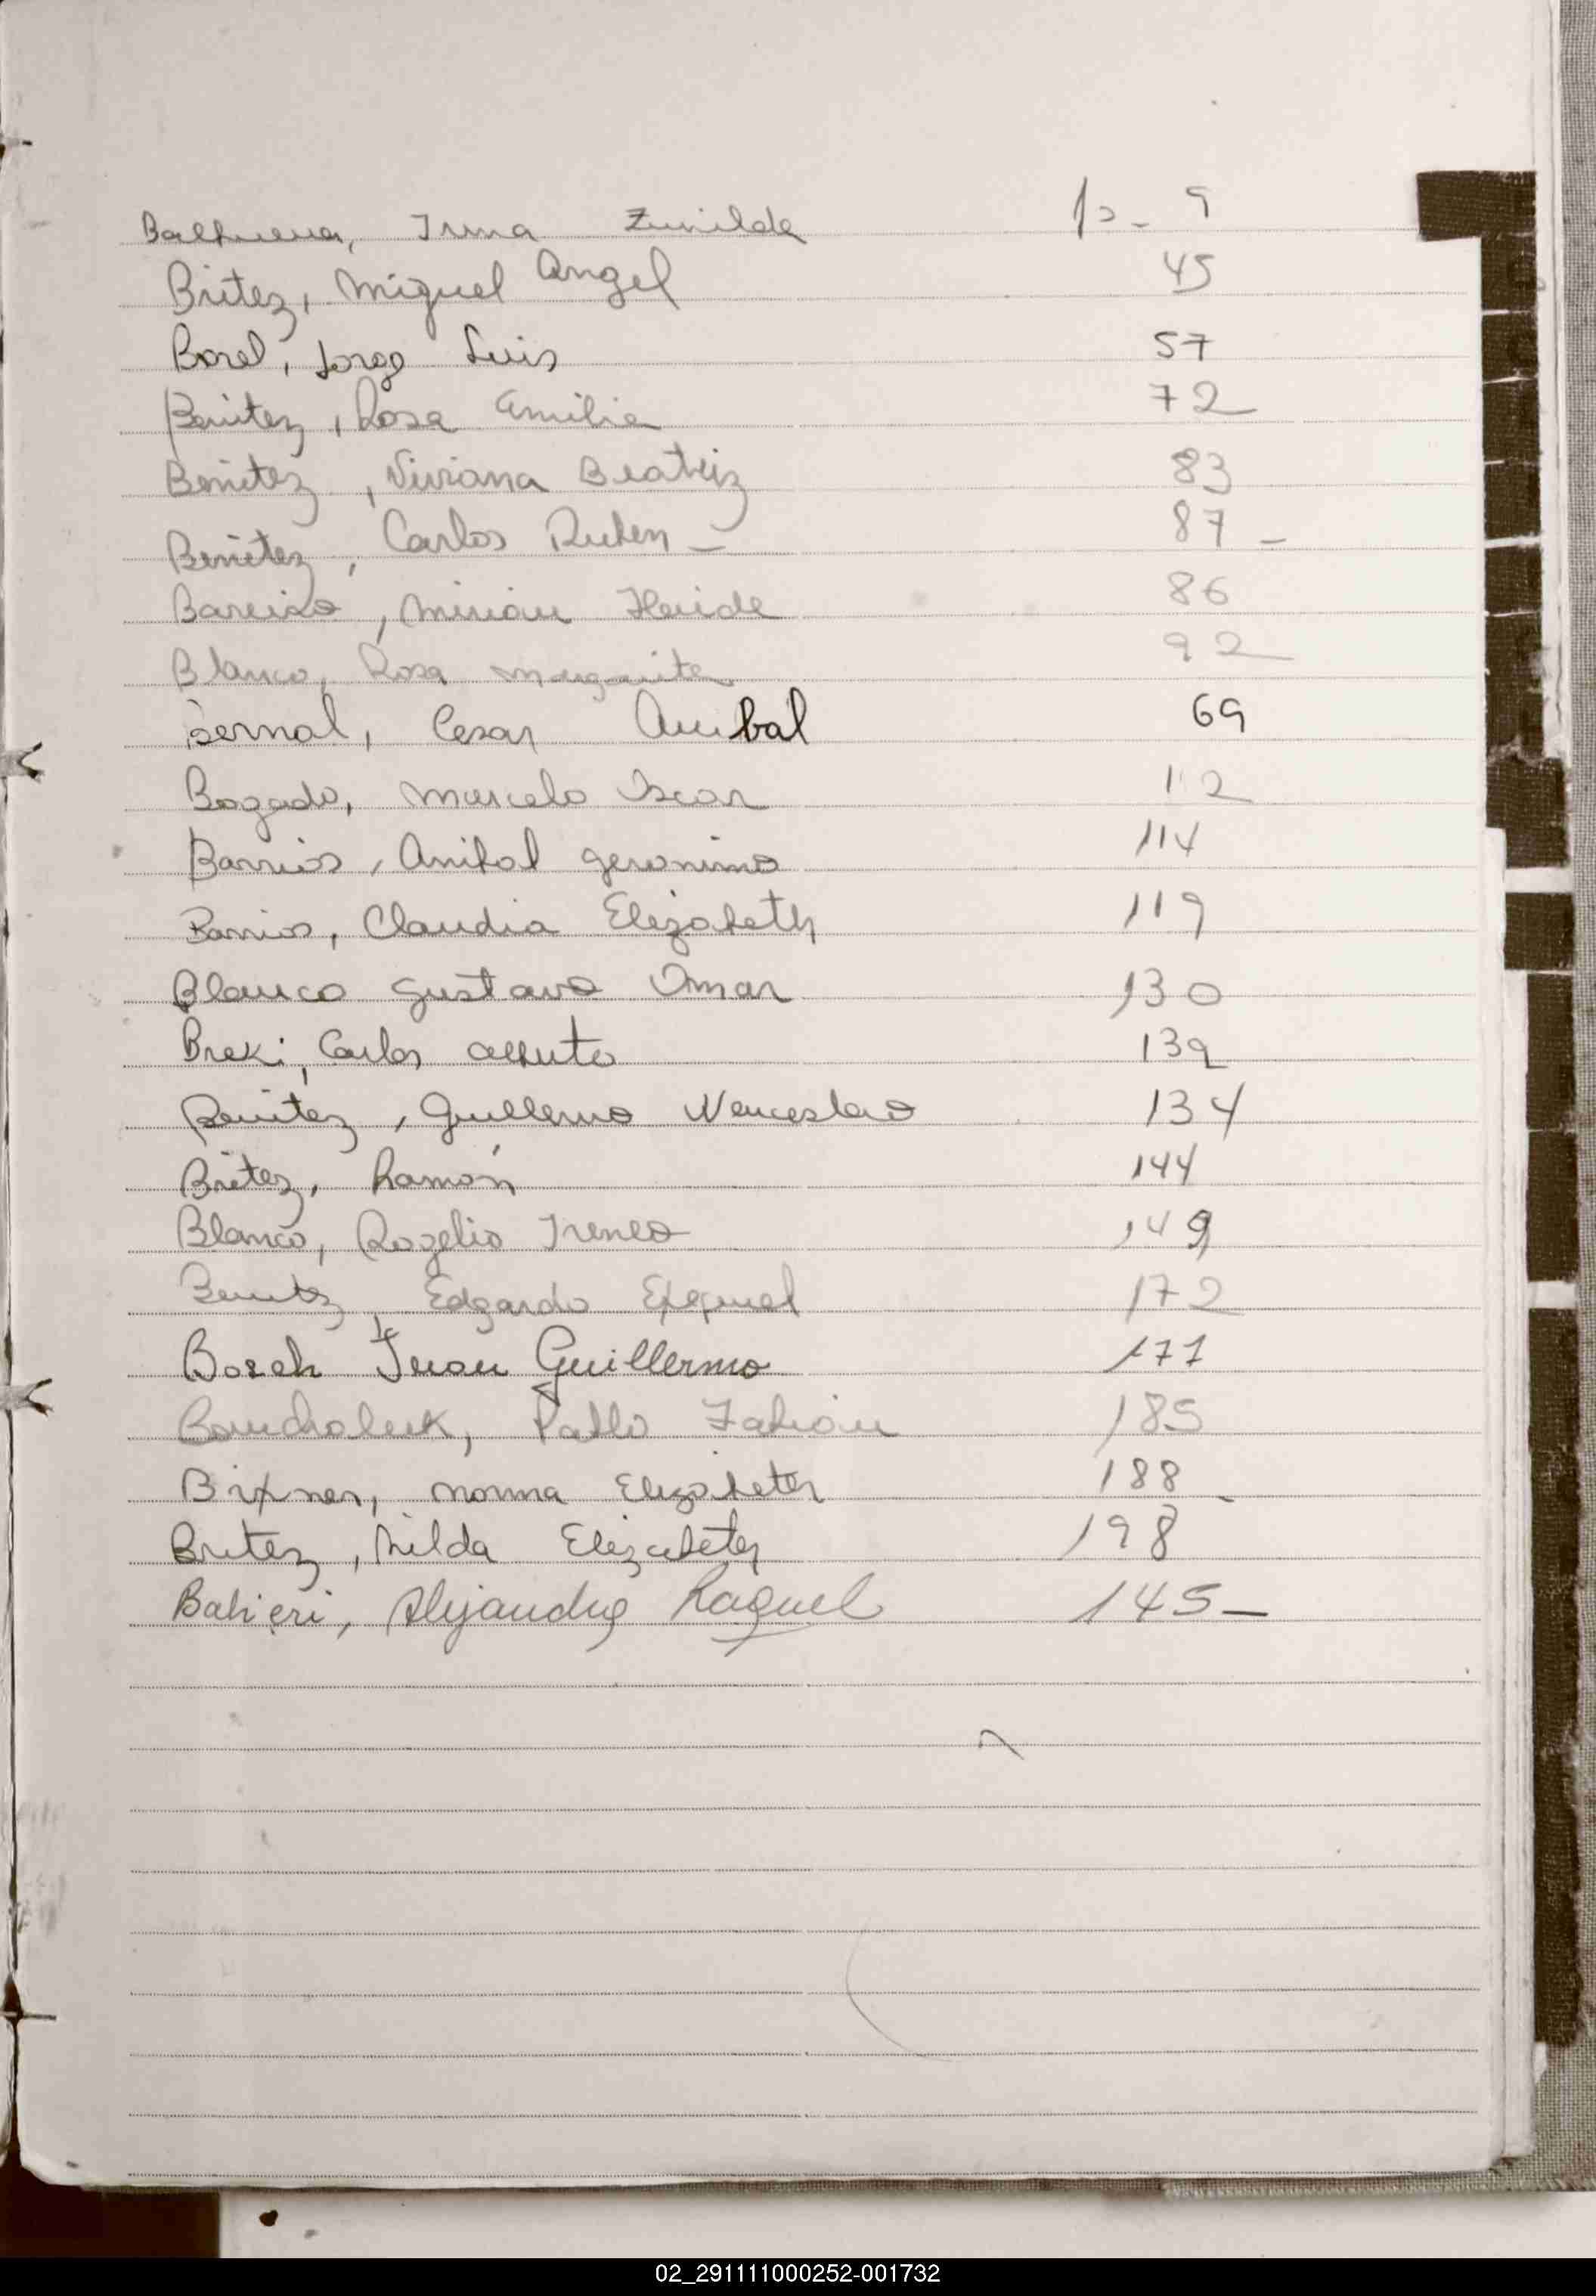 Balbuena, Irma Zunilda p- 9
Britez, Miguel Angel 45
Borel, Jorge Luis 57
Benitez, Rosa Emilia 72
Benitez, Viviana Beatriz 83
Benitez, Carlos Ruben - 87 -
Bareiro, Mirian Heride 86
Blanco, Rosa Margarita 92
Bernal, Cesar Anibal 69
Bogado, Marcelo Oscar 112
Barrios, Anibal Geronimo 114
Barrios, Claudia Elizabeth 119
Blanco Gustavo Omar 130
Breki, Carlos Alberto 139
Benitez, Guillermo Wenceslao 134
Britez, Ramón 144
Blanco, Rogelio Ireneo 149
Benitez, Edgardo Exequiel 172
Bosch Juan Guillermo 177
Pablo Fabian 185
Bixner, Norma Elizabeth 188
Britez, Nilda Elizabeth 198
Balieri, Alejandra Raquel 145-
02_291111000252-001732